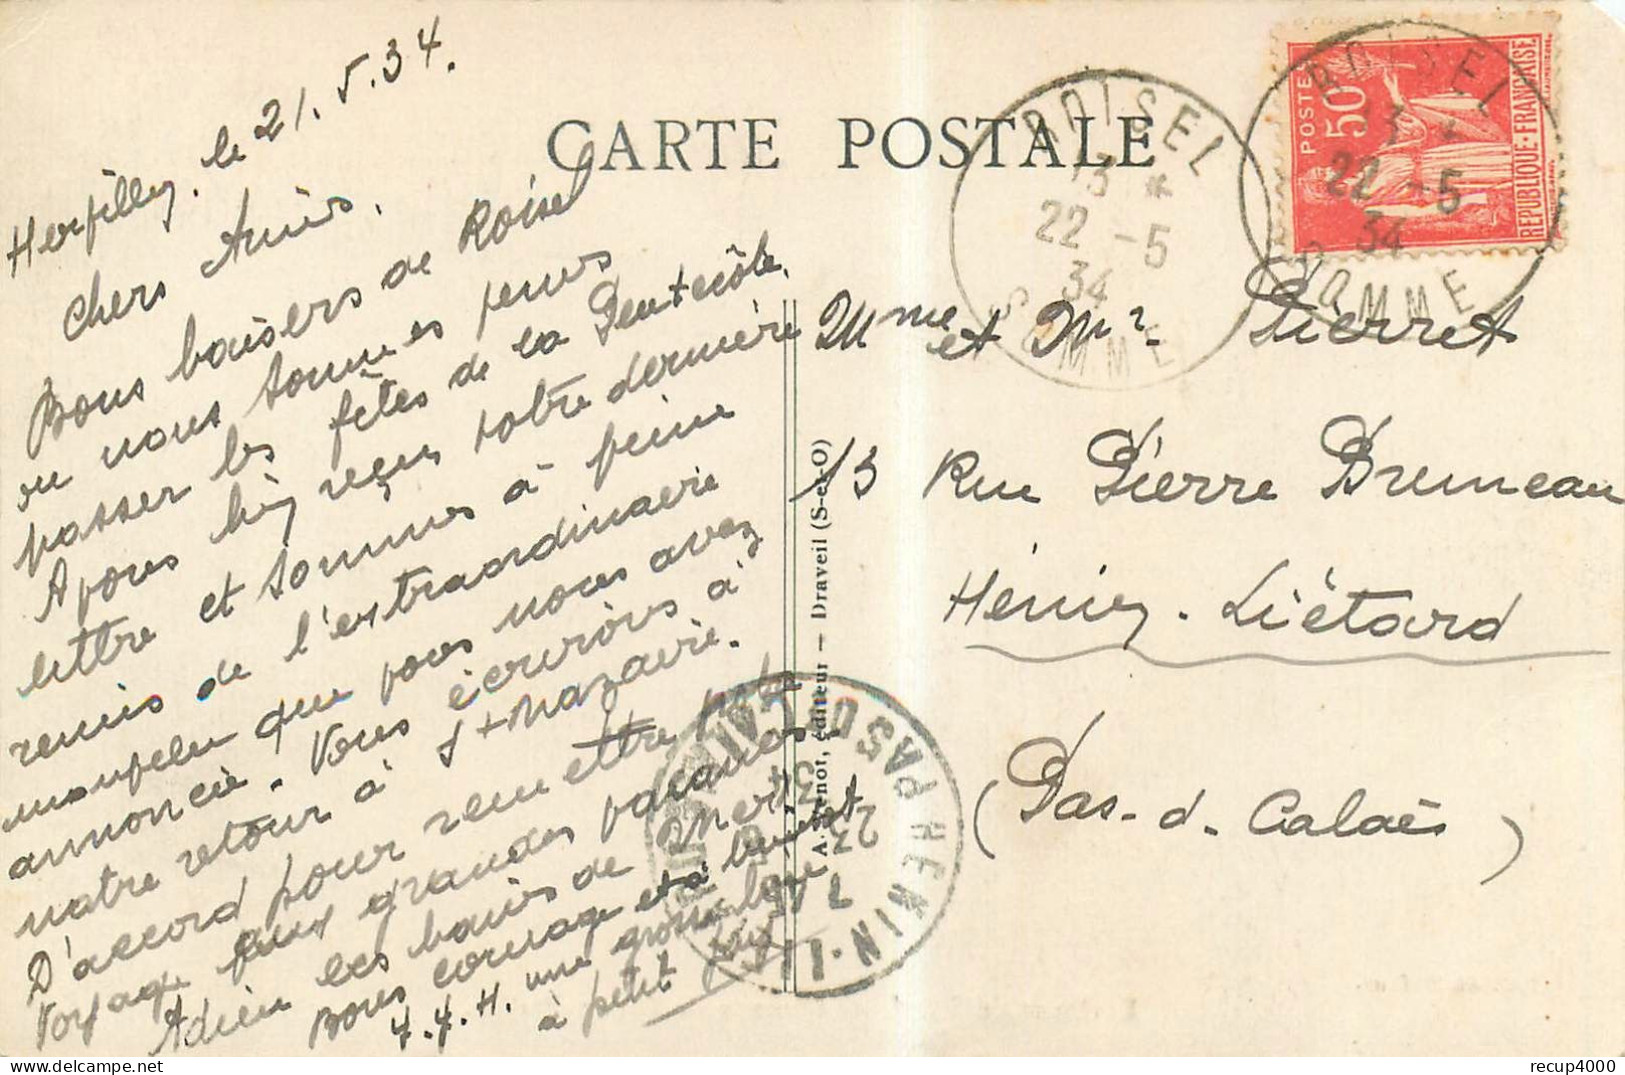 Herfilly. le 21.V.34.
CARTE POSTALE
Chers Amis.
Bons baisers de Roisel
ou nous sommes venus
passer les fêtes de la Pentecôte.
Avons bien reçu votre dernière
lettre et sommes à peine
remis de l'extraordinaire
que vous nous avez
annoncée. Vous écrirons à
notre retour à St Nazaire.
D'accord pour remettre votre
voyage aux grandes vacances.
Adieu les bains de Mer.
Bons courage et à bientôt
Y.Y.H. une grosse bise
à petit Guy
ROISEL
13 *
22 -5
34
SOMME
ROISEL
13 *
22 -5
34
SOMME
POSTES
50
REPUBLIQUE·FRANÇAISE
Mme et Mr Pierret
13 Rue Pierre Bruneau
Hénin-Liétard
(Pas-d-Calais)
éditeur — Draveil (S-et-O)
HENIN-LIETARD
PAS DE CALAIS
23
34
recup4000